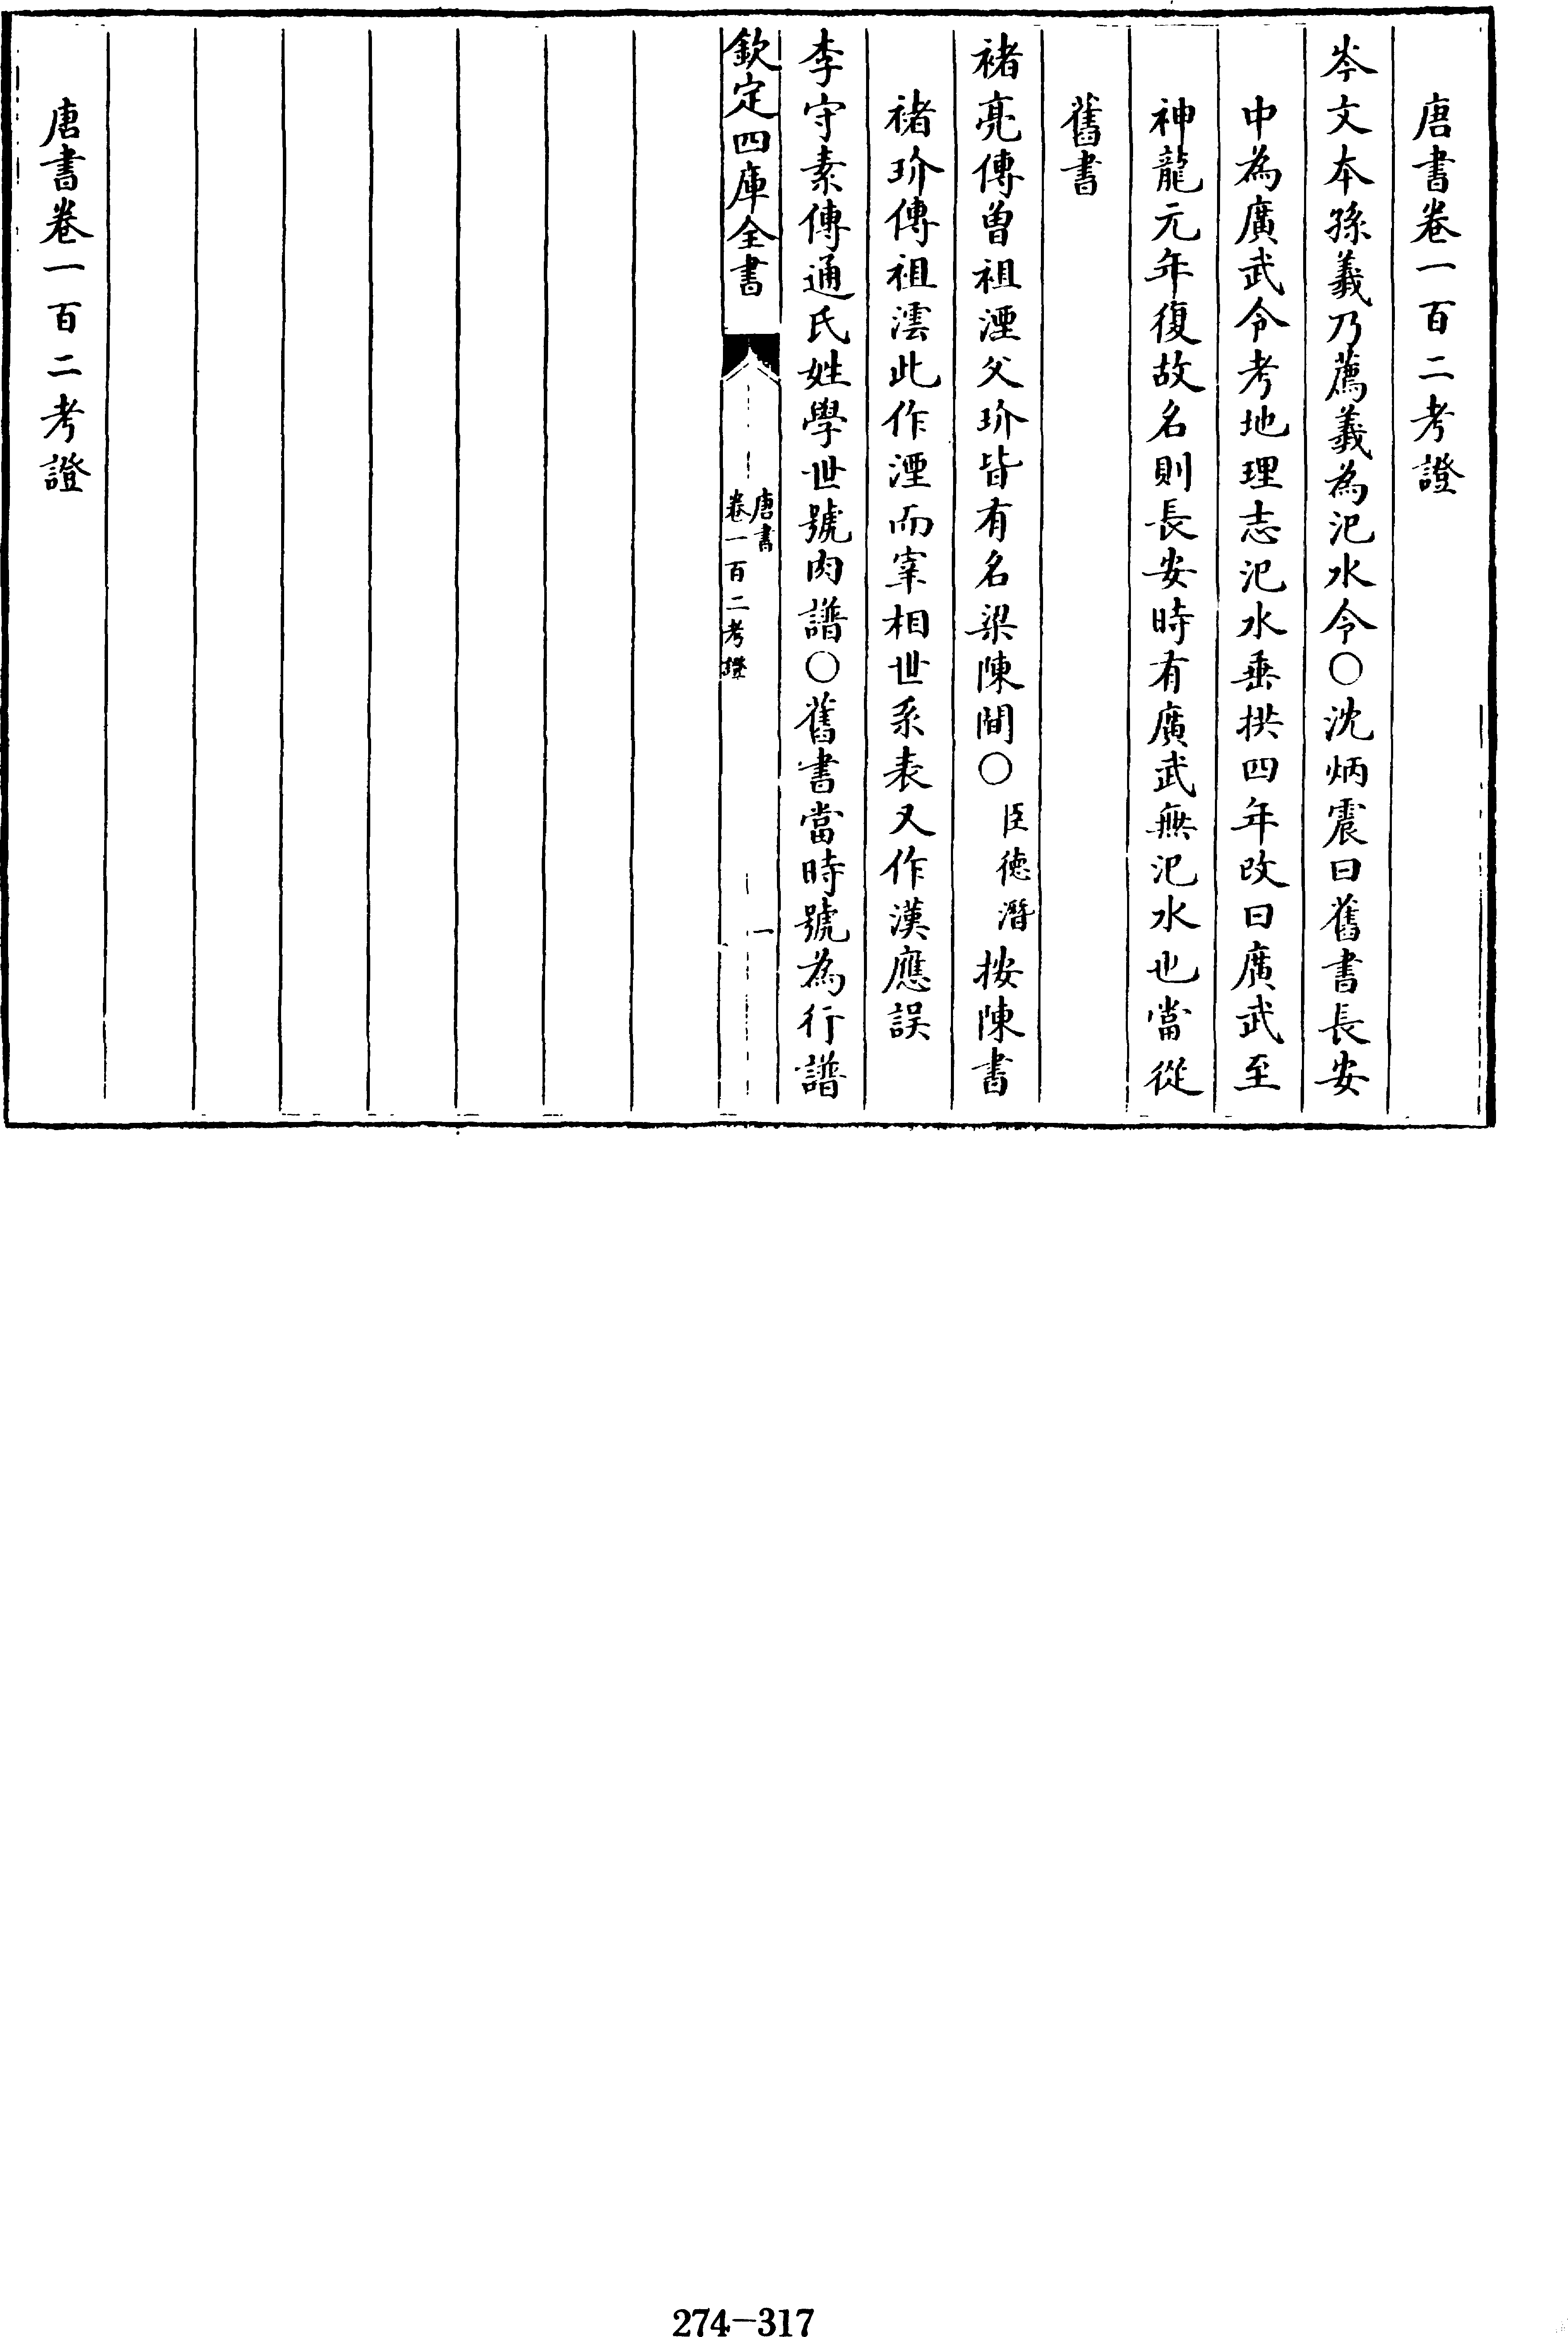 唐書卷一百二考證
岑文本孫羲乃薦羲為汜水令○沈炳震曰舊書長安
中為廣武令考地理志汜水垂拱四年改曰廣武至
神龍元年復故名則長安時有廣武無汜水也當從
舊書
褚亮傳曽祖湮父玠皆有名梁陳間○臣德潛按陳書
褚玠傳祖澐此作湮而宰相世系表又作漢應誤
李守素傳通氏姓學世號肉譜○舊書當時號為行譜
欽定四庫全書
唐書
卷一百二考證
一
唐書卷一百二考證
274-317